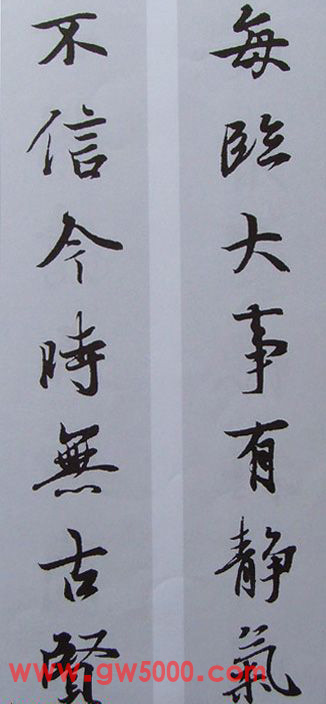 每臨大事有静氣
不信今時無古賢
www.gw5000.com